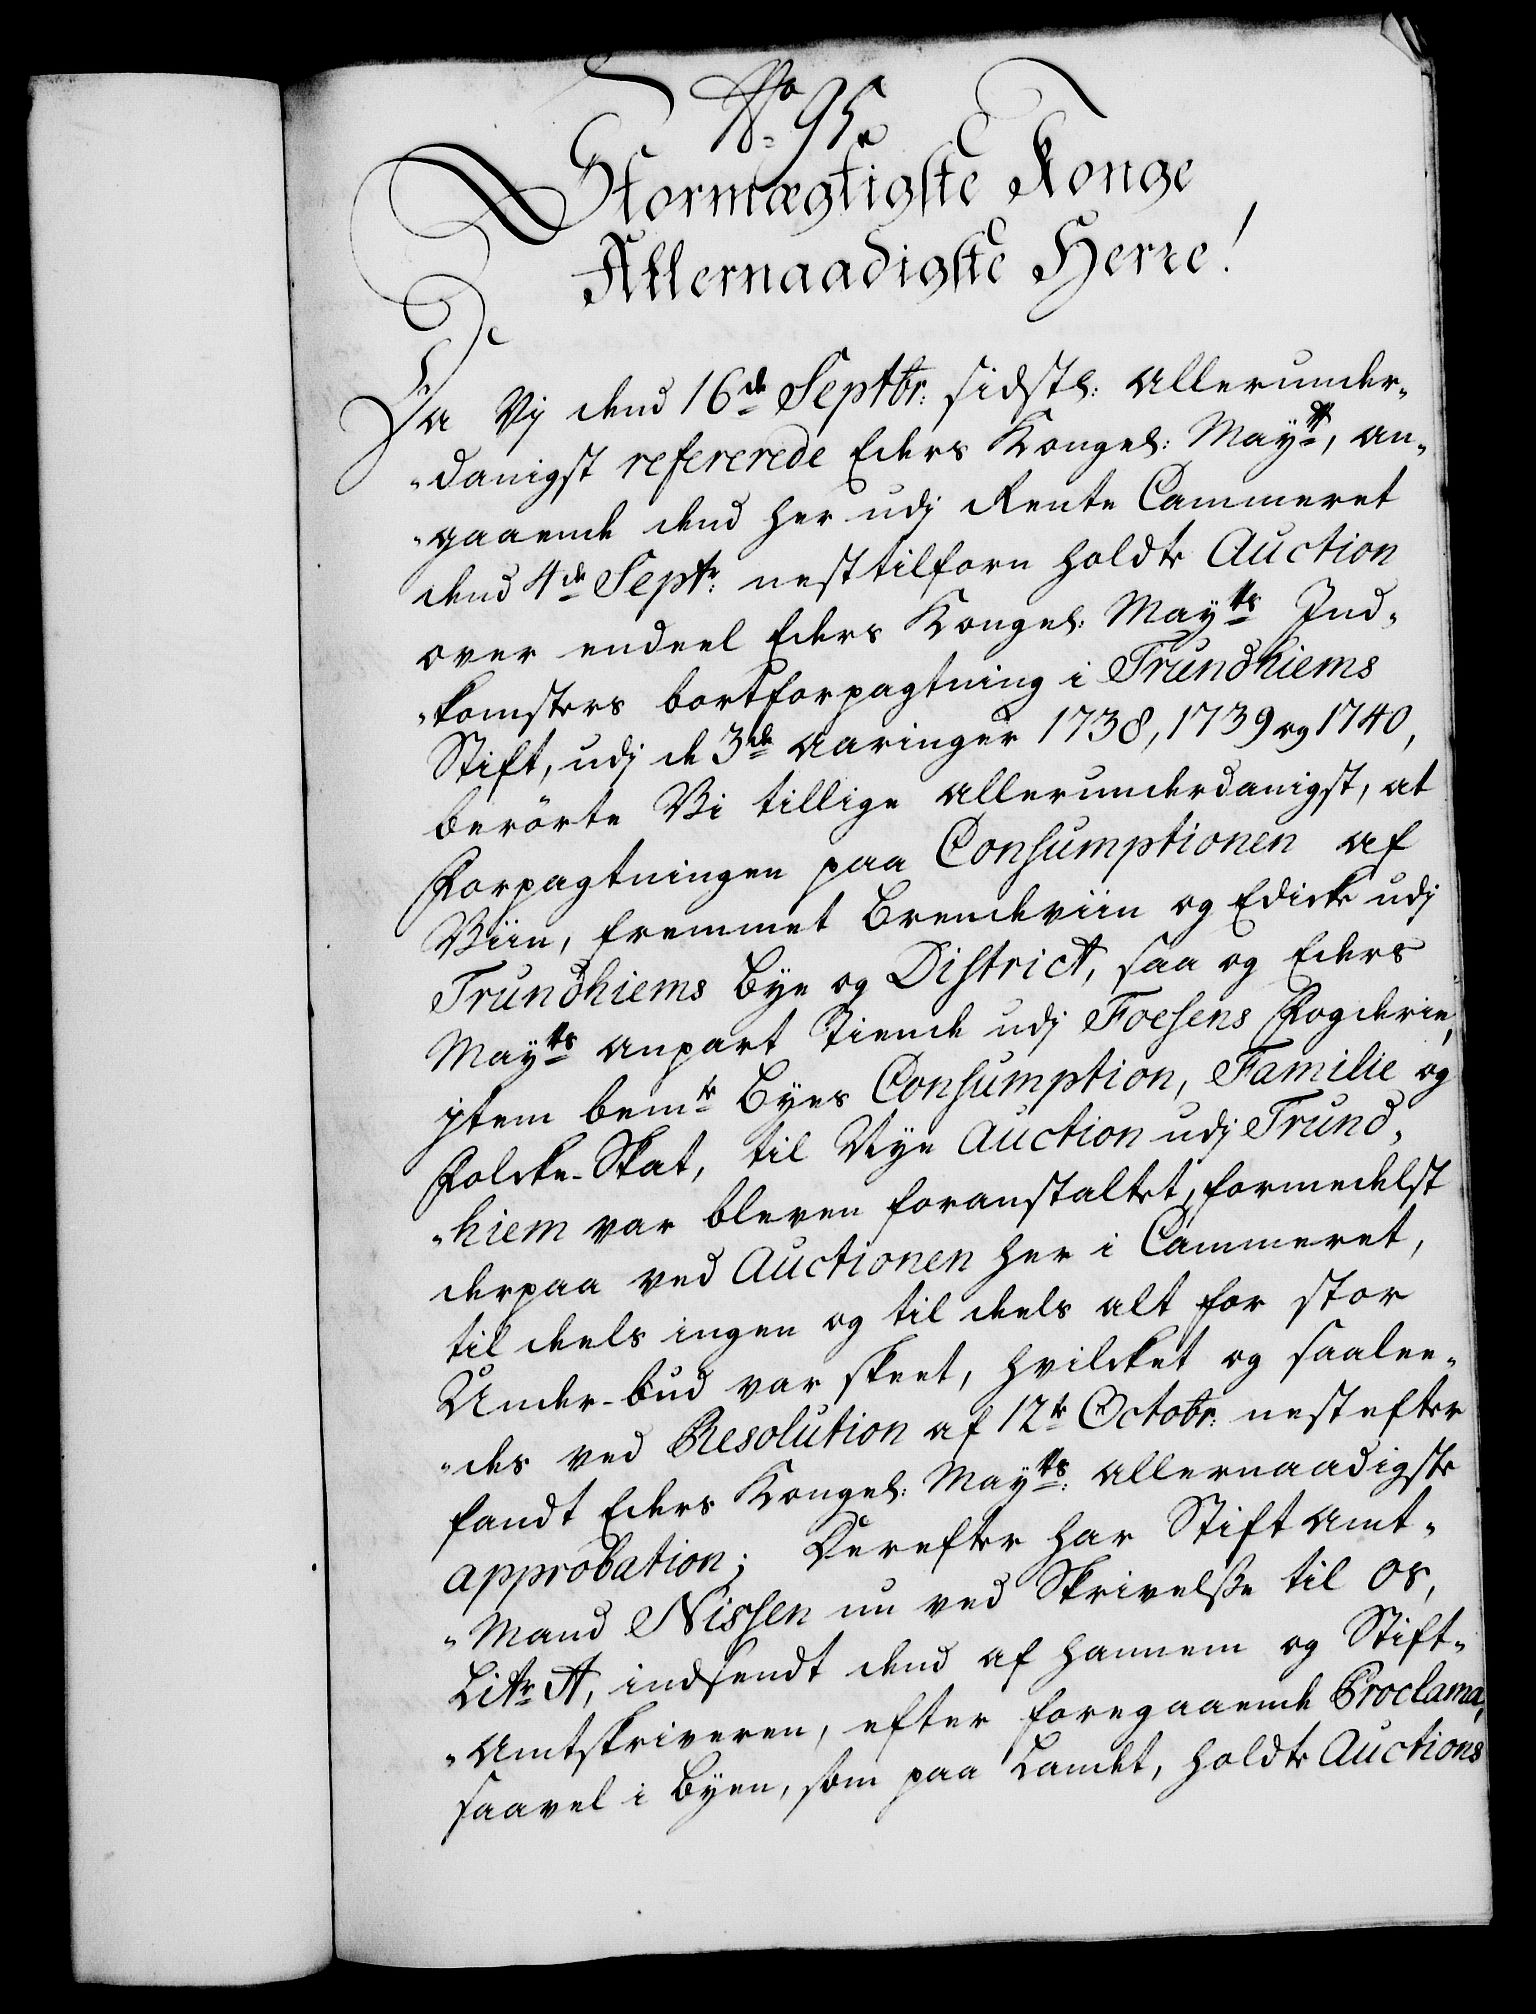 No. 95.
Stormægtigste Konge
Allernaadigste Herre!
Da Vj dend 16de Septbr: sidstl: allerunder-
"danigst refererede Eders Kongel: Maytt, an-
"gaaende dend her udj Rente Cammeret
dend 4de Septr: nest tilforn holdte Auction
over endeel Eders Kongel: Mayts Ind-
"komsters bortforpagtning i Trundhiems
Stift, udj de 3de Aaringer 1738, 1739 og 1740,
berørte Vi tillige allerunderdanigst, at
Forpagtningen paa Consumptionen af
Viin, fremmet Brendeviin og Edicke udj
Trundhiems Bye og District, saa og Eders
Mayts anpart Tiende udj Foesens Fogderie,
jtem bemte Byes Consumption, Familie og
Folcke-Skat, til Nye Auction udj Trund-
"hiem var bleven foranstaltet, formedelst
derpaa ved Auctionen her i Cammeret,
til deels ingen og til deels alt for stor
Under-bud var skeet, hvilcket og saalee-
"des ved Resolution af 12te Octobr: nestefter
fandt Eders Kongel: Mayts: allernaadigste
approbation; Derefter har Stift Amt-
"Mand Nissen nu ved Skrivelsse til os,
Litr A, indsendt dend af hannem og Stift-
"Amtskriveren, efter foregaaende Proclama,
saavel i Byen, som paa Landet, holdte Auctions